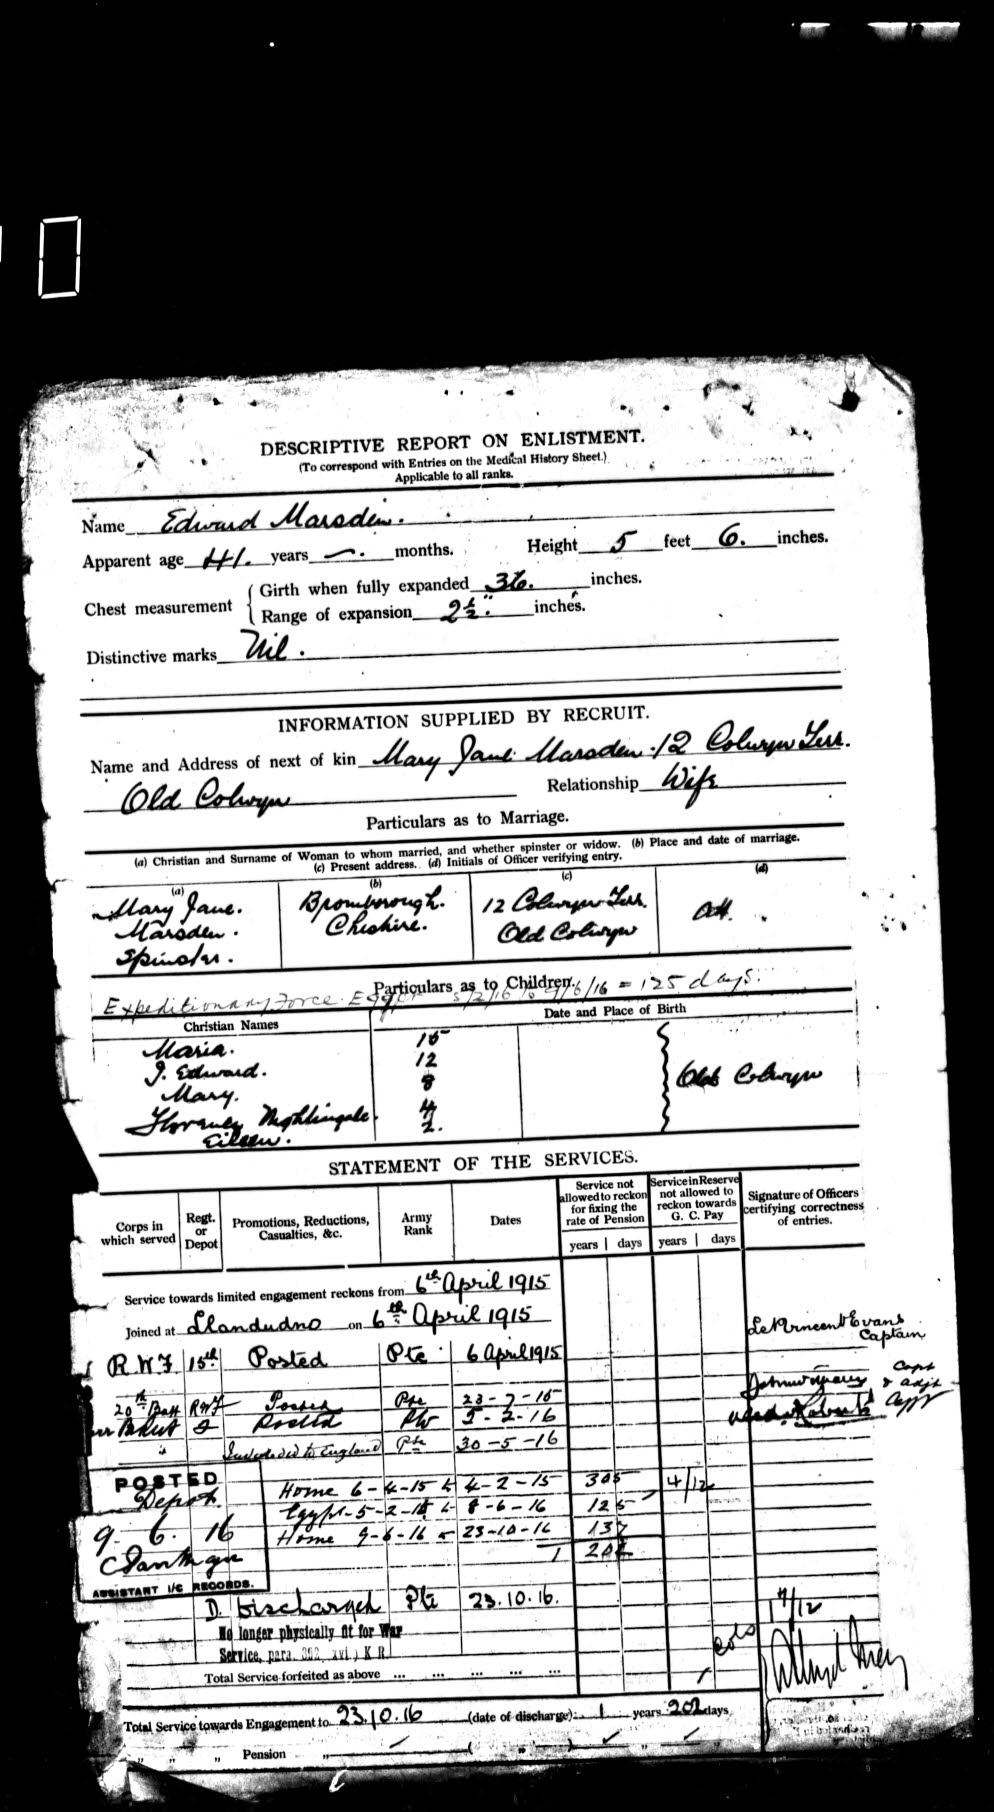 DESCRIPTIVE REPORT ON ENLISTMENT.
(To correspond with Entries on the Medical History Sheet.)
Applicable to all ranks.
Name Edward Marsden.
Apparent age 41. years —. months. Height 5 feet 6. inches.
Chest measurement { Girth when fully expanded 36. inches.
Range of expansion 2½". inches.
Distinctive marks Nil.
INFORMATION SUPPLIED BY RECRUIT.
Name and Address of next of kin Mary Jane Marsden. 12 Colwyn Terr.
Old Colwyn Relationship Wife
Particulars as to Marriage.
(a) Christian and Surname of Woman to whom married, and whether spinster or widow. (b) Place and date of marriage.
(c) Present address. (d) Initials of Officer verifying entry.
(a) (b) (c) (d)
Mary Jane. Bromborough. 12 Colwyn Terr.
Marsden. Cheshire. Old Colwyn
Spinster.
Particulars as to Children.
Expeditionary Force Egypt 5/2/16 to 8/6/16 = 125 days.
Christian Names Date and Place of Birth
Maria. 15
J. Edward. 12
Mary. 8 Old Colwyn
Florence Nightingale. 4
Eileen. 2.
STATEMENT OF THE SERVICES.
Corps in which served Regt. or Depot Promotions, Reductions, Casualties, &c. Army Rank Dates Service not allowed to reckon for fixing the rate of Pension Service in Reserve not allowed to reckon towards G. C. Pay Signature of Officers certifying correctness of entries.
years | days years | days
Service towards limited engagement reckons from 6th April 1915
Joined at Llandudno on 6th April 1915
Vincent Evans
Captain
R W F 15th Posted Pte 6 April 1915
20th Batt RWF Posted Pte 23-7-15 Capt & adjt
Posted Pte 5-2-16 Roberts Capt
" to England Pte 30-5-16
POSTED
Depot
9. 6. 16
ASSISTANT I/C RECORDS.
Home 6-4-15 to 4-2-15 305 4/12
Egypt 5-2-16 to 8-6-16 125
Home 9-6-16 to 23-10-16 137
1 202
D. Discharged Pte 23.10.16.
No longer physically fit for War
Service, para. 392, xvi, K R
Total Service forfeited as above ... ... ... ... ...
Total Service towards Engagement to 23.10.16 (date of discharge) 1 years 202 days
" " " Pension " ( " ) "